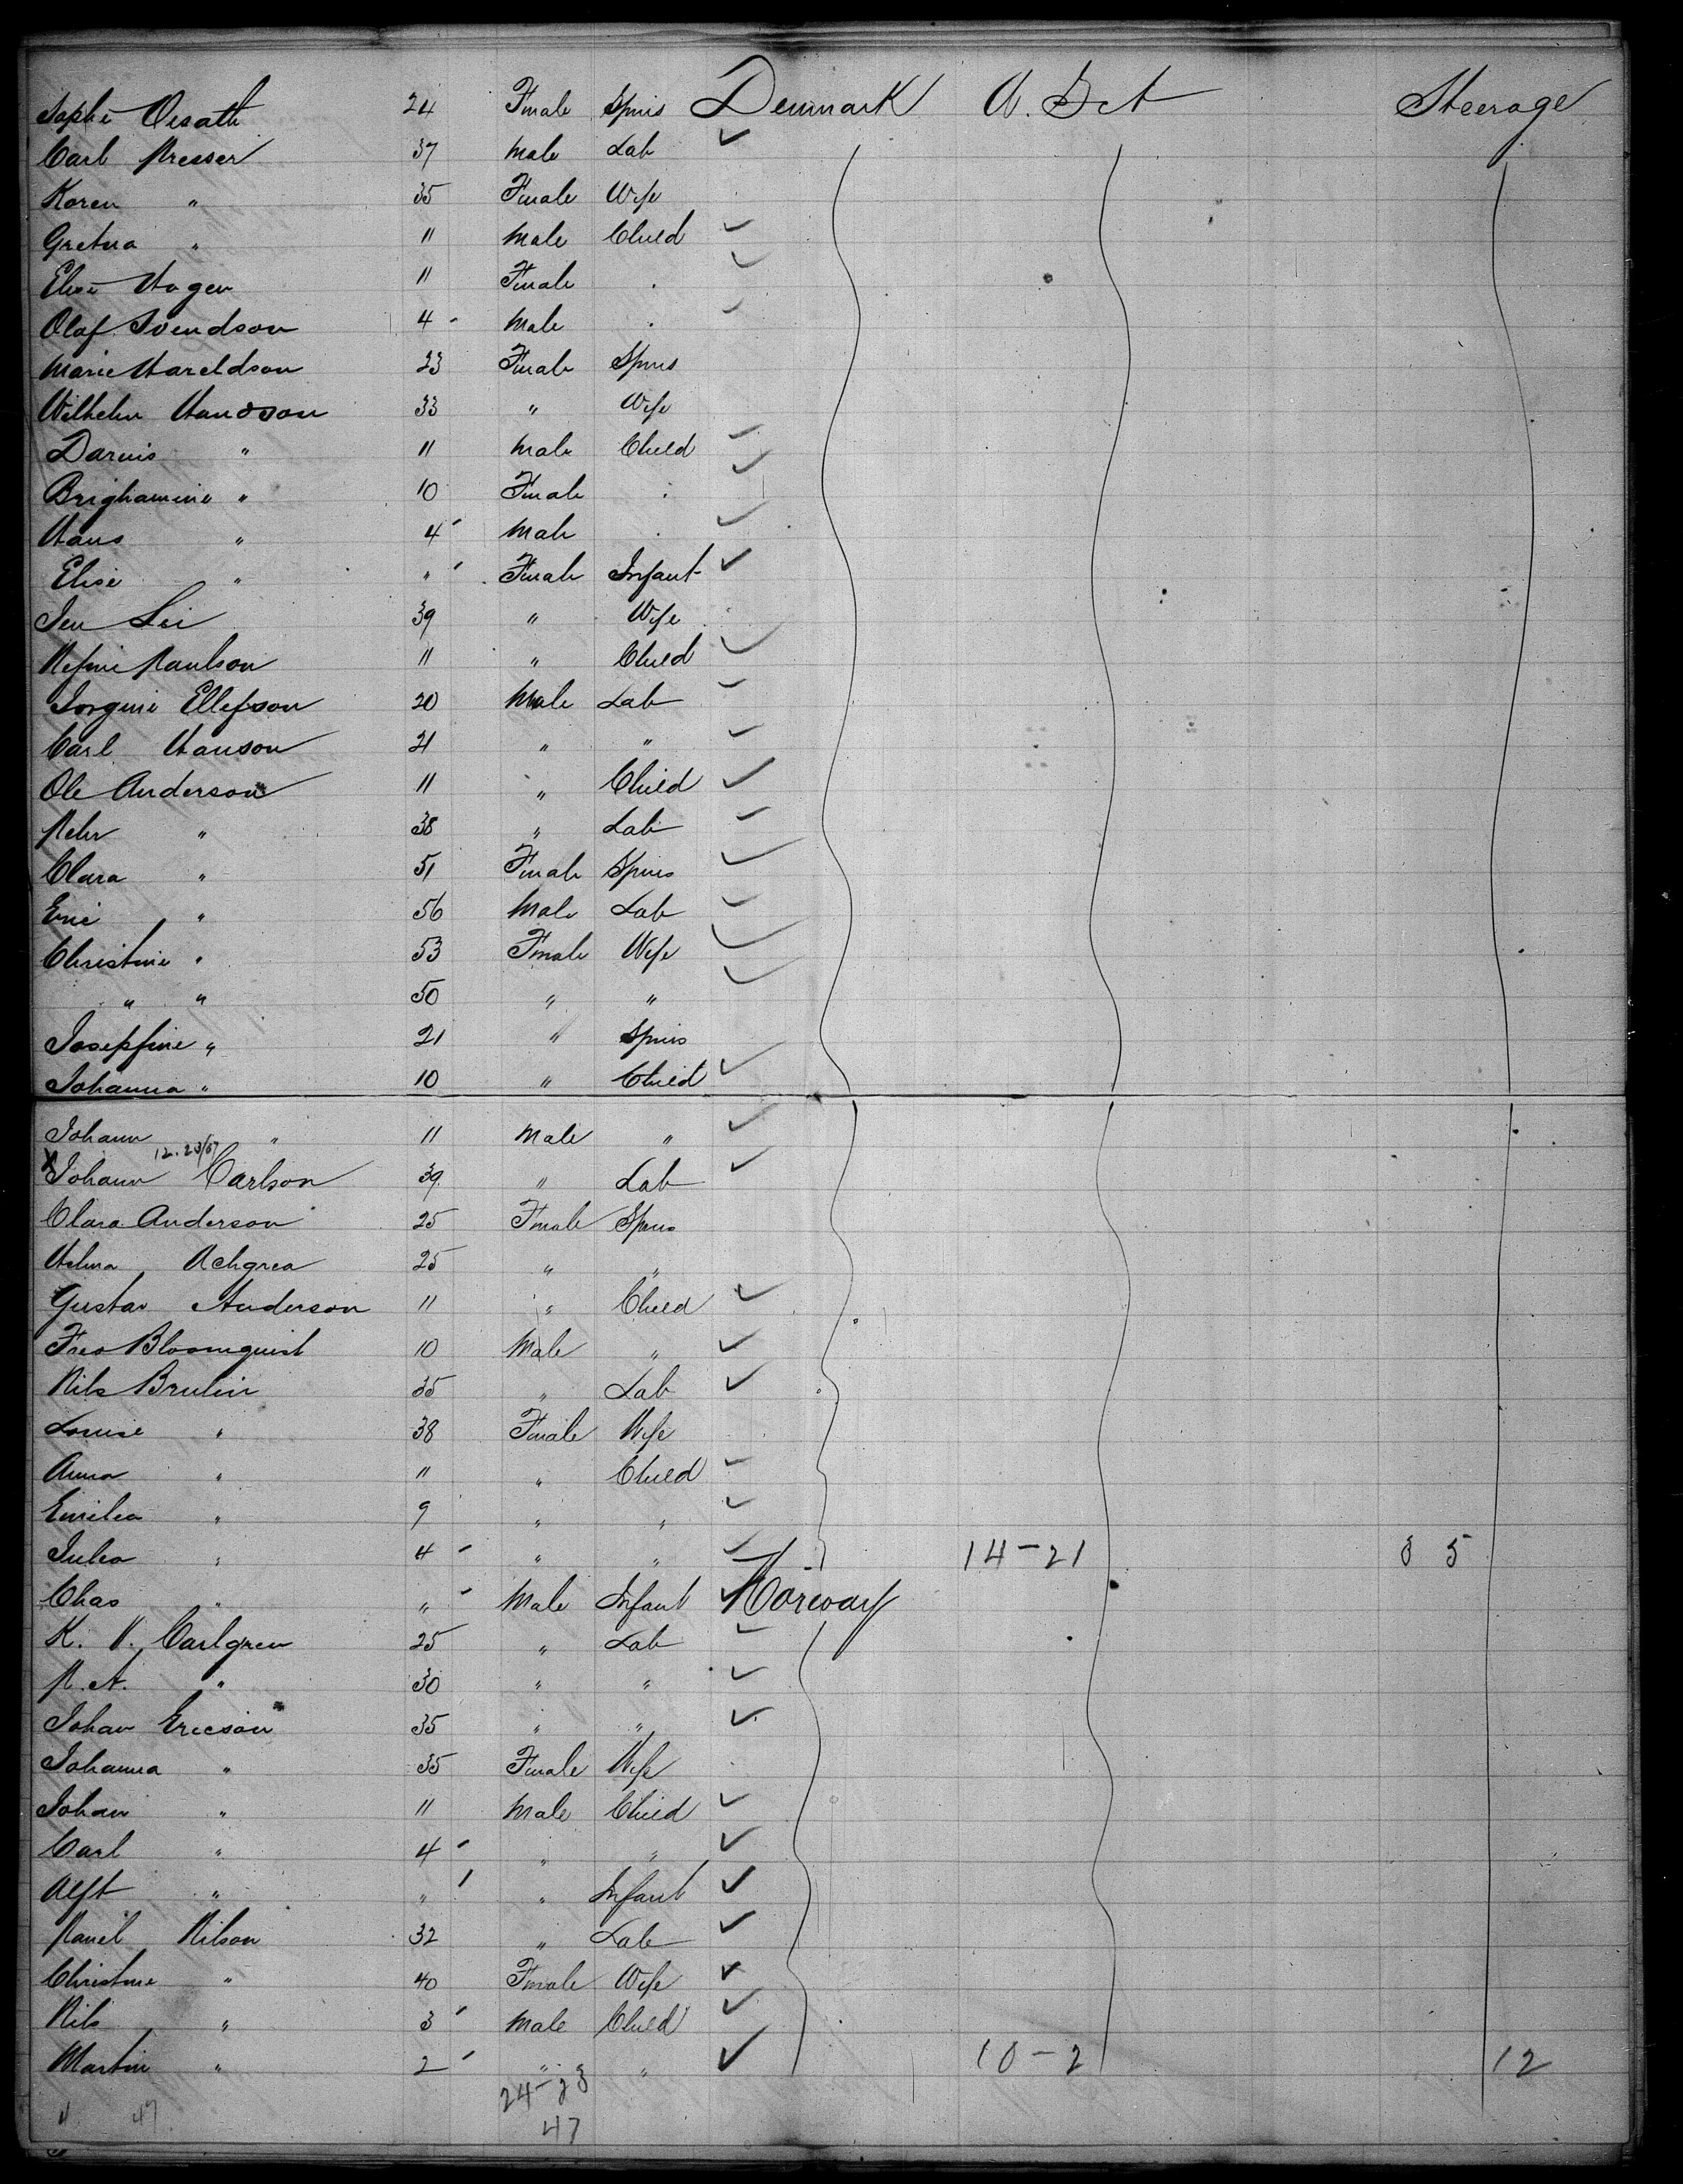 Sophi Oisath 24 Fmale Spins Denmark U. Sct Steerage
Carl Presser 37 Male Lab
Koren " 35 Fmale Wife
Gretna " 11 Male Child
Elise Hagen 11 Fmale .
Olaf Svendson 4 Male .
Marie Hareldson 23 Fmale Spins
Wilhelm Handson 33 " Wife
Darnis " 11 Male Child
Brighamine " 10 Fmale .
Hans " 4 Male .
Elise " " Fmale Infant
Jen Lei 39 " Wife
Paulson 11 " Child
Jorgine Ellefson 20 Male Lab
Carl Hanson 21 " "
Ole Anderson 11 " Child
Pehr " 38 " Lab
Clara " 51 Fmale Spins
Eric " 56 Male Lab
Christine " 53 Fmale Wife
" " 50 " "
Josepfine " 21 " Spins
Johanna " 10 " Child
Johann " 11 Male "
12.23/57
X Johann Carlson 39 " Lab
Clara Anderson 25 Fmale Spins
Helma Achgrea 25 " "
Gustav Anderson 11 " Child
Fres Bloomquist 10 Male "
Nils Brulin 35 " Lab
Louise " 38 Fmale Wife
Anna " 11 " Child
Emilia " 9 " "
Julia " 4 " " 14-21 35
Chas " " Male Infant Norway
K. P. Carlgren 25 " Lab
P. A. " 30 " "
Johan Ericson 35 " "
Johanna " 35 Fmale Wife
Johan " 11 Male Child
Carl " 4 " "
Alft " " " Infant
Nilson 32 " Lab
Christine " 40 Fmale Wife
Nils " 3 Male Child
Martin " 2 " " 10-2 12
24-23
47 47